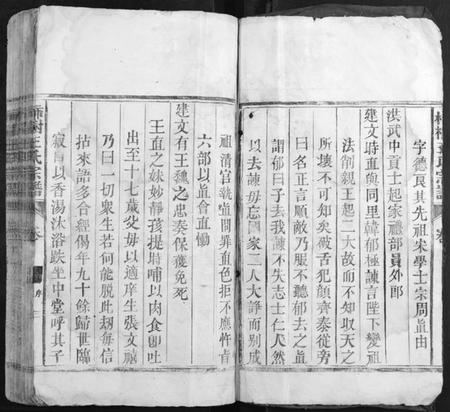 字德良其先祖宋學士宗周直由
洪武中貢士起家禮部員外郎
建文時直與同里韓郁極諫言陛下變祖
法削親王起二大故而不知取天之
所壞不可知矣彼舌犯顔齊泰從旁
曰名正言順敵乃服不聽郁去之直
謂郁曰子去我諫不失志士仁人然
以去諫毋忘國家二人大諍而别成
祖清官執直間畀直色拒不應忤肯
六部以直會直働
建文有王魏之忠奏保獲免死
王直之妹妙靜孩提時哺以肉食即吐
出至十七歲父母以適庠生張文禧
乃曰一切衆生若何能脫此刼每信
拈來語多合經偈年九十餘歸世臨
寂旨以香湯沐浴趺坐中堂呼其子
王氏宗譜
卷
序